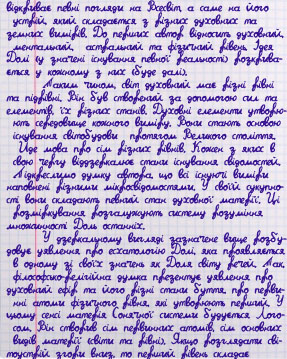 відкриває певні погляди на Всесвіт, а саме на його
устрій, який складається з різних духовних та
земних вимірів. До перших автор відносить духовний,
ментальний, астральний та фізичний рівень. Ідея
Долі у значені існування певної реальності розкрива-
ється у кожному з них (буде далі).
Таким чином, світ духовний має різні рівні
та підрівні. Він був створений за допомогою сил та
елементів, їх різних станів. Духовні елементи утворю-
ють середовище кожного виміру. Вони стають основою
існування світобудови протягом Великого століття.
Іде мова про сім різних рівнів. Кожен з яких в
свою чергу віддзеркалює стани існування свідомостей.
Підкреслимо думку автора, що всі існуючі виміри
наповнені різними мікросвідомостями. У своїй сукупно-
сті вони складають певний стан духовної матерії. Ці
розмірковування розгалужують систему розуміння
множинності Доль останніх.
У дзеркальному вигляді зазначене вище розбу-
довує уявлення про есхатологію Долі, яка проявляється
в одному зі своїх значень як Доля світу речей. Так,
філософсько-релігійна думка презентує уявлення про
духовний ефір та його різні стани буття, про первин-
ні атоми фізичного рівня, які утворюють перший. У
цьому сенсі матерія Сонячної системи будується Лого-
сом. Він створив сім первинних атомів, сім основних
видів матерії (світи та рівні). Якщо розглядати сві-
тоустрій згори вниз, то перший рівень складає